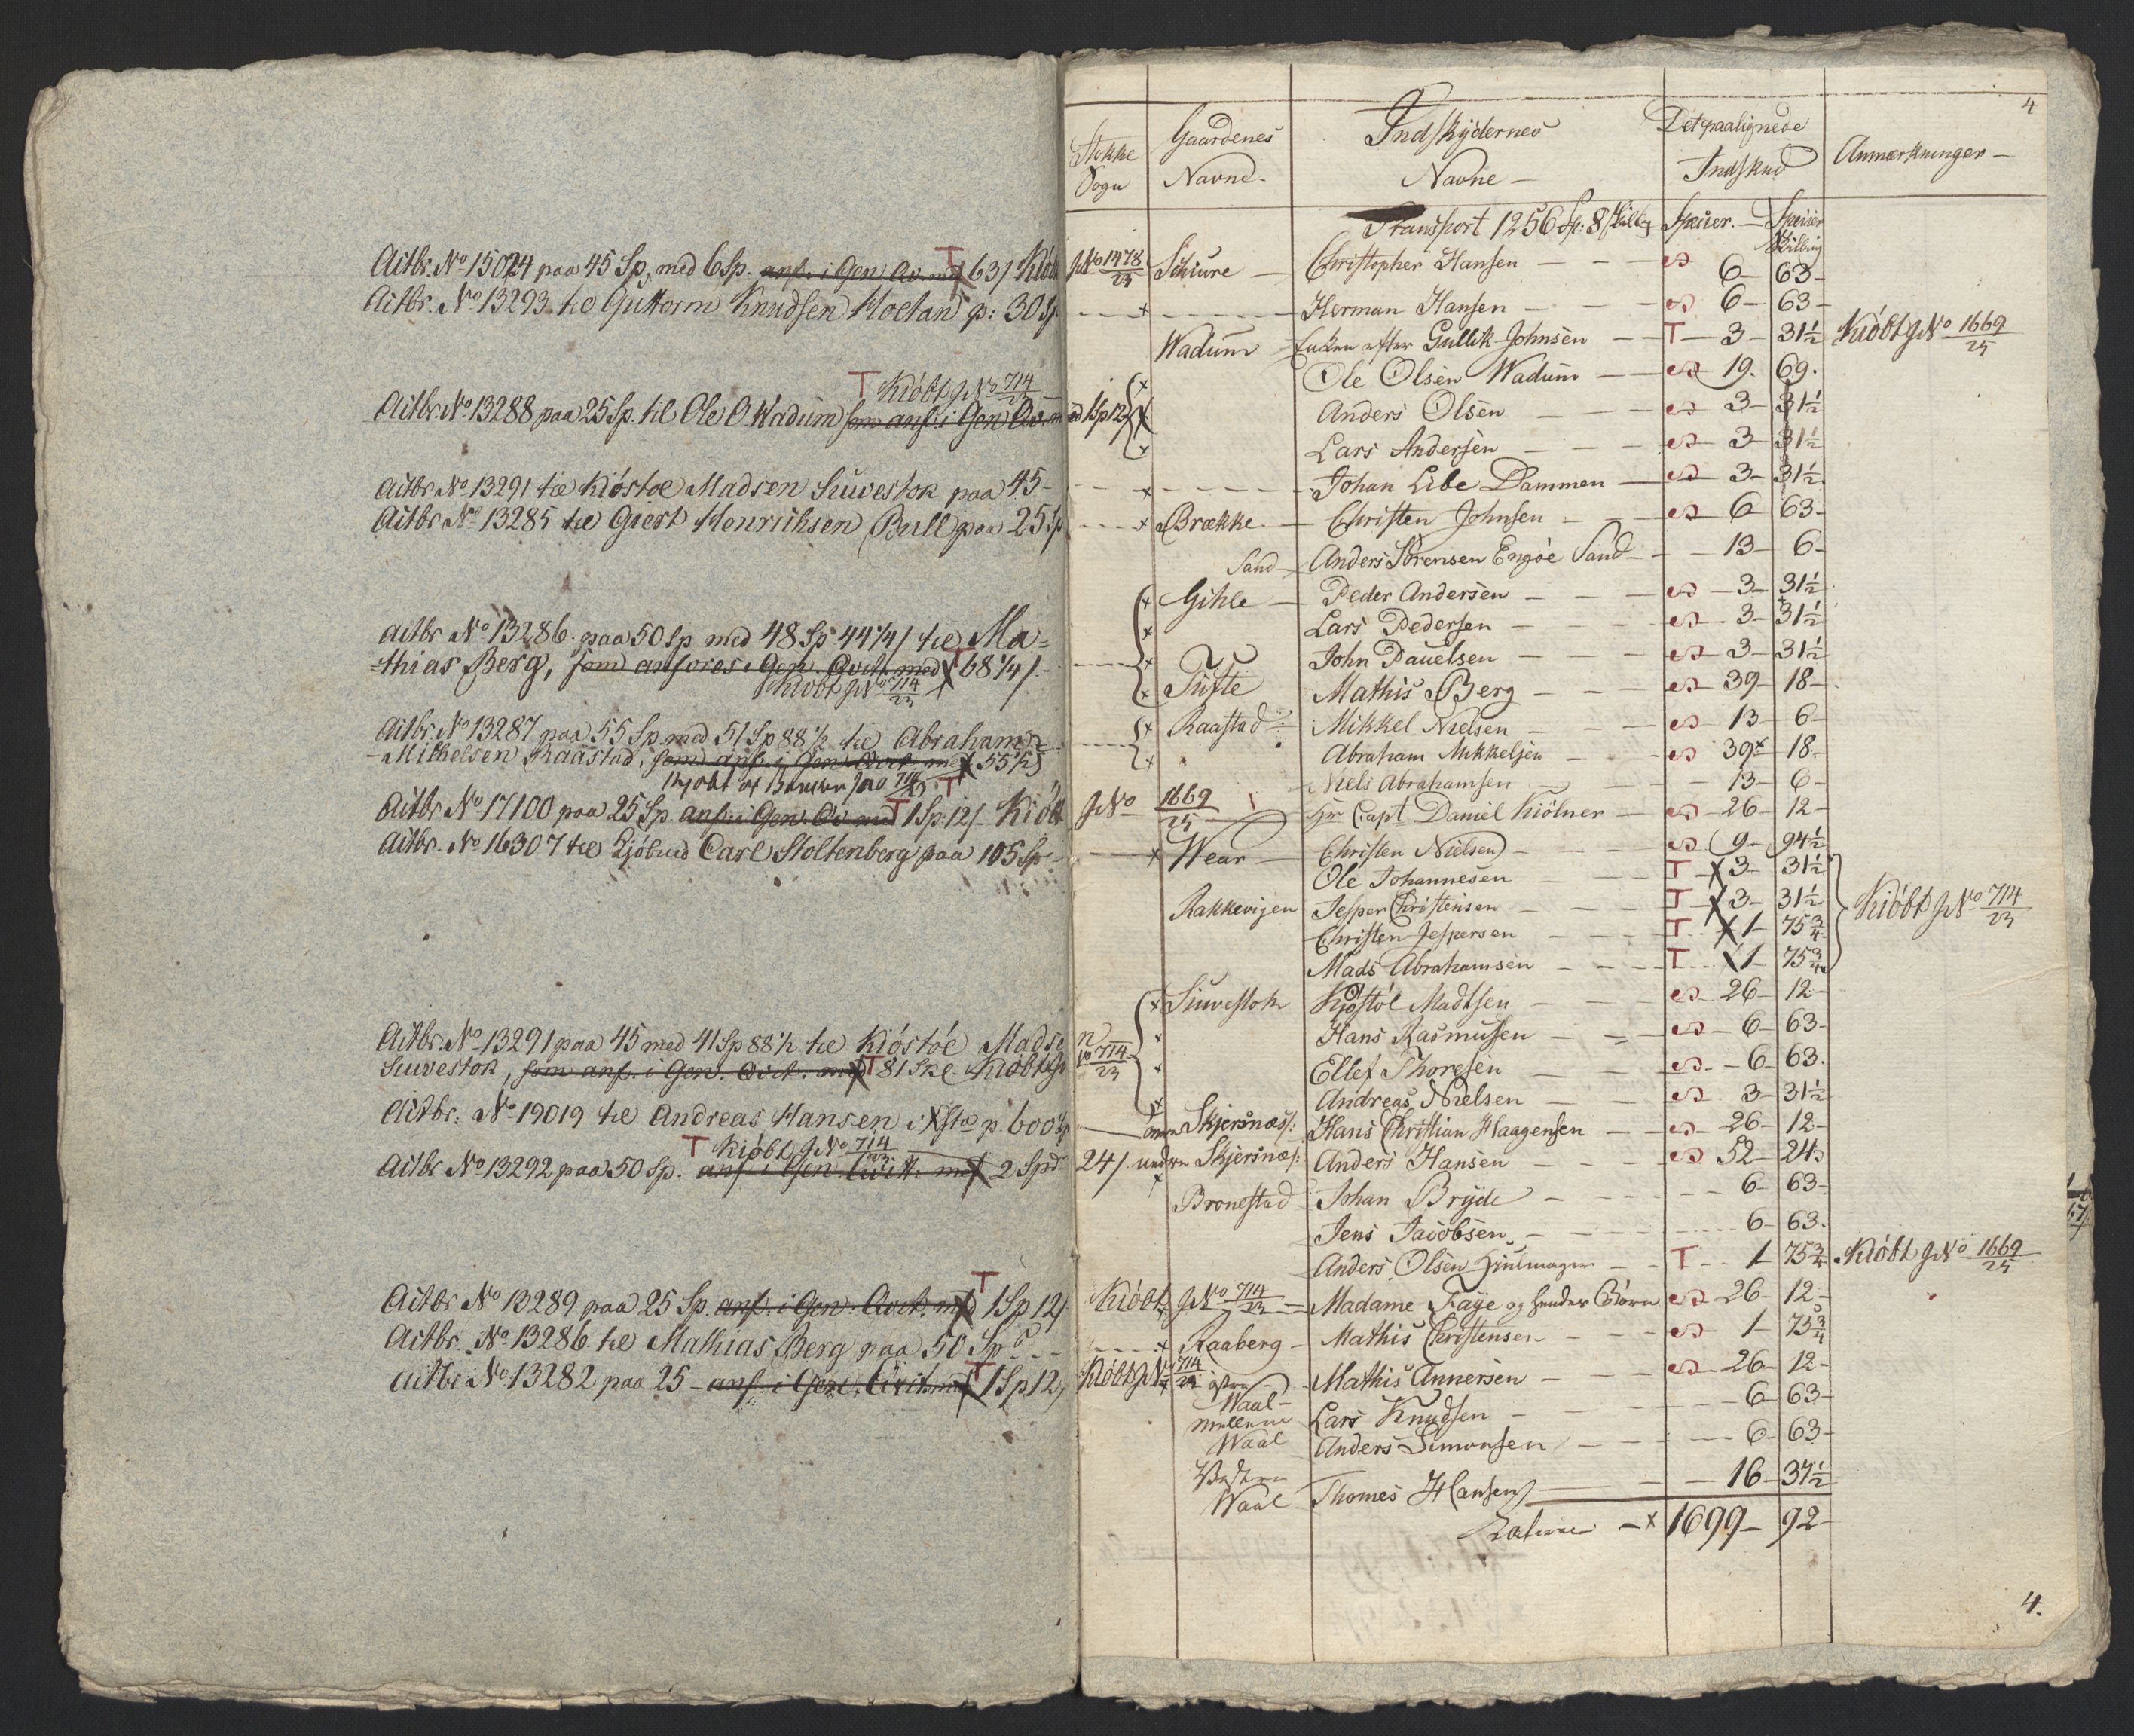 Actbr. No 15024 paa 45 Sp. med 6 Sp. anf. i Gen. Qv. med T 63/ Kiöbt
Actbr. No 13293 til Guttorm Knudsen Hoetan p: 30 Sp
T Kiöbt J No 714/23
Actbr. No 13288 paa 25 Sp. til Ole O. Wadum som anf. i Gen Qv. med 1 Sp 12/
Actbr No 13291 til Kióstoe Madsen Siuvestok paa 45 -
Actbr No 13285 til Giert Henrichsen Bull paa 25 Sp
Actbr No 13286 paa 50 Sp med 48 Sp 44 1/4/ til Ma=
=thias Berg, som anföres i Gen. Qvit. med T 68 1/4/. -
Kiöbt J No 714/23
Actbr. No 13287 paa 55 Sp med 51 Sp 88 1/2 til Abraham
Mikkelsen Raastad, som anf. i Gen. Qvit. m 55 1/2 s
Kjöbt af Banken J no 714/23 T
Actbr No 17100 paa 25 Sp. anf. i Gen. Qv. med T 1 Sp. 12/ Kiöbt
Actbr. No 16307 til Carl Stoltenberg paa 105 Sp -
Actbr. No 13291 paa 45 med 41 Sp 88 1/2 til Kióstóe Madsen
Siuvestok, som anf. i Gen. Qvit. med T 81 Sk. Kiöbt J No 714/23
Actbr: No 19019 til Andreas Hansen i p. 600 Sp
T Kiöbt J No 714/23
Actbr No 13292 paa 50 Sp. anf. i Gen. Qvitt. med 2 Spd 24/
Actbr No 13289 paa 25 Sp. anf. i Gen. Qvit. med T 1 Sp 12/ Kióbt J No 714/23
Actbr. No 13286 til Mathias Berg paa 50 Sp
Actbr No 13282 paa 25 - anf. i Gen. Qvit. med T 1 Sp 12/ Kióbt J No 714/23
4
Stokke Sogn Gaardenes Navne - Indskÿdernes Navne - Det paalignede Indskud Anmærkninger -
Transport 1256 Sp: 8 Skilling Specier. - Specier Skilling
J No 1478/23 Schiure - Christopher Hansen - 6 - 63 -
Herman Hansen - 6 - 63 -
Wadum Enken efter Gullik Johnsen - T - 3 - 31 1/2 Kióbt J No 1669/25
Ole Olsen Wadum - 19. 69.
Anders Olsen - 3 - 31 1/2
Lars Andersen - 3 - 31 1/2
Johan Libe Dammen - 3 - 31 1/2
Brække - Christen Johnsen - 6 63 -
Sand - Anders Sörensen Engöe Sand - 13 - 6 -
Gihle - Peder Andersen - 3 - 31 1/2
Lars Pedersen - 3 - 31 1/2
John Pauelsen - 3 - 31 1/2
Tufte Mathis Berg - 39 - 18 -
Raastad - Mikkel Nielsen - 13 - 6 -
Abraham Mikkelsen - 39 - 18 -
Niels Abrahamsen - 13 - 6 -
J No 1669/25 Hr Capt Daniel Kiölner - 26 - 12 -
Wear - Christen Nielsen - 9 - 94 1/2
Ole Johannesen T X 3 - 31 1/2
Rakkevigen Jesper Christensen - T X 3 - 31 1/2 Kióbt J No 714/23
Christen Jespersen - T X 1 - 75 3/4
Mads Abrahamsen - T X 1 - 75 3/4
Siuvestok Kjöstól Madtsen - 26 - 12 -
Hans Rasmussen - 6 - 63 -
Ellef Thoresen - 6 - 63.
Andreas Nielsen - 3 - 31 1/2
Skjersnæs/: Hans Christian Haagensen - 26 - 12 -
undre Skjersnæs/: Anders Hansen - 52 - 24
Bronestad Johan Brÿde - 6 - 63 -
Jens Jacobsen - 6 - 63.
Anders Olsen Hiulmager - T - 1 75 3/4 Kióbt J No 1669/25
Madame Faÿe og hendes Börn 26 - 12 -
Raaberg - Mathis Christensen - 1 - 75 3/4
östre Waal - Mathis Annersen - 26 - 12 -
mellem Waal Lars Knudsen - 6 - 63 -
Anders Simonsen - 6 - 63 -
Vestre Waal Thomes Hansen - 16 - 37 1/2
Latus - x 1699 - 92 -
4.